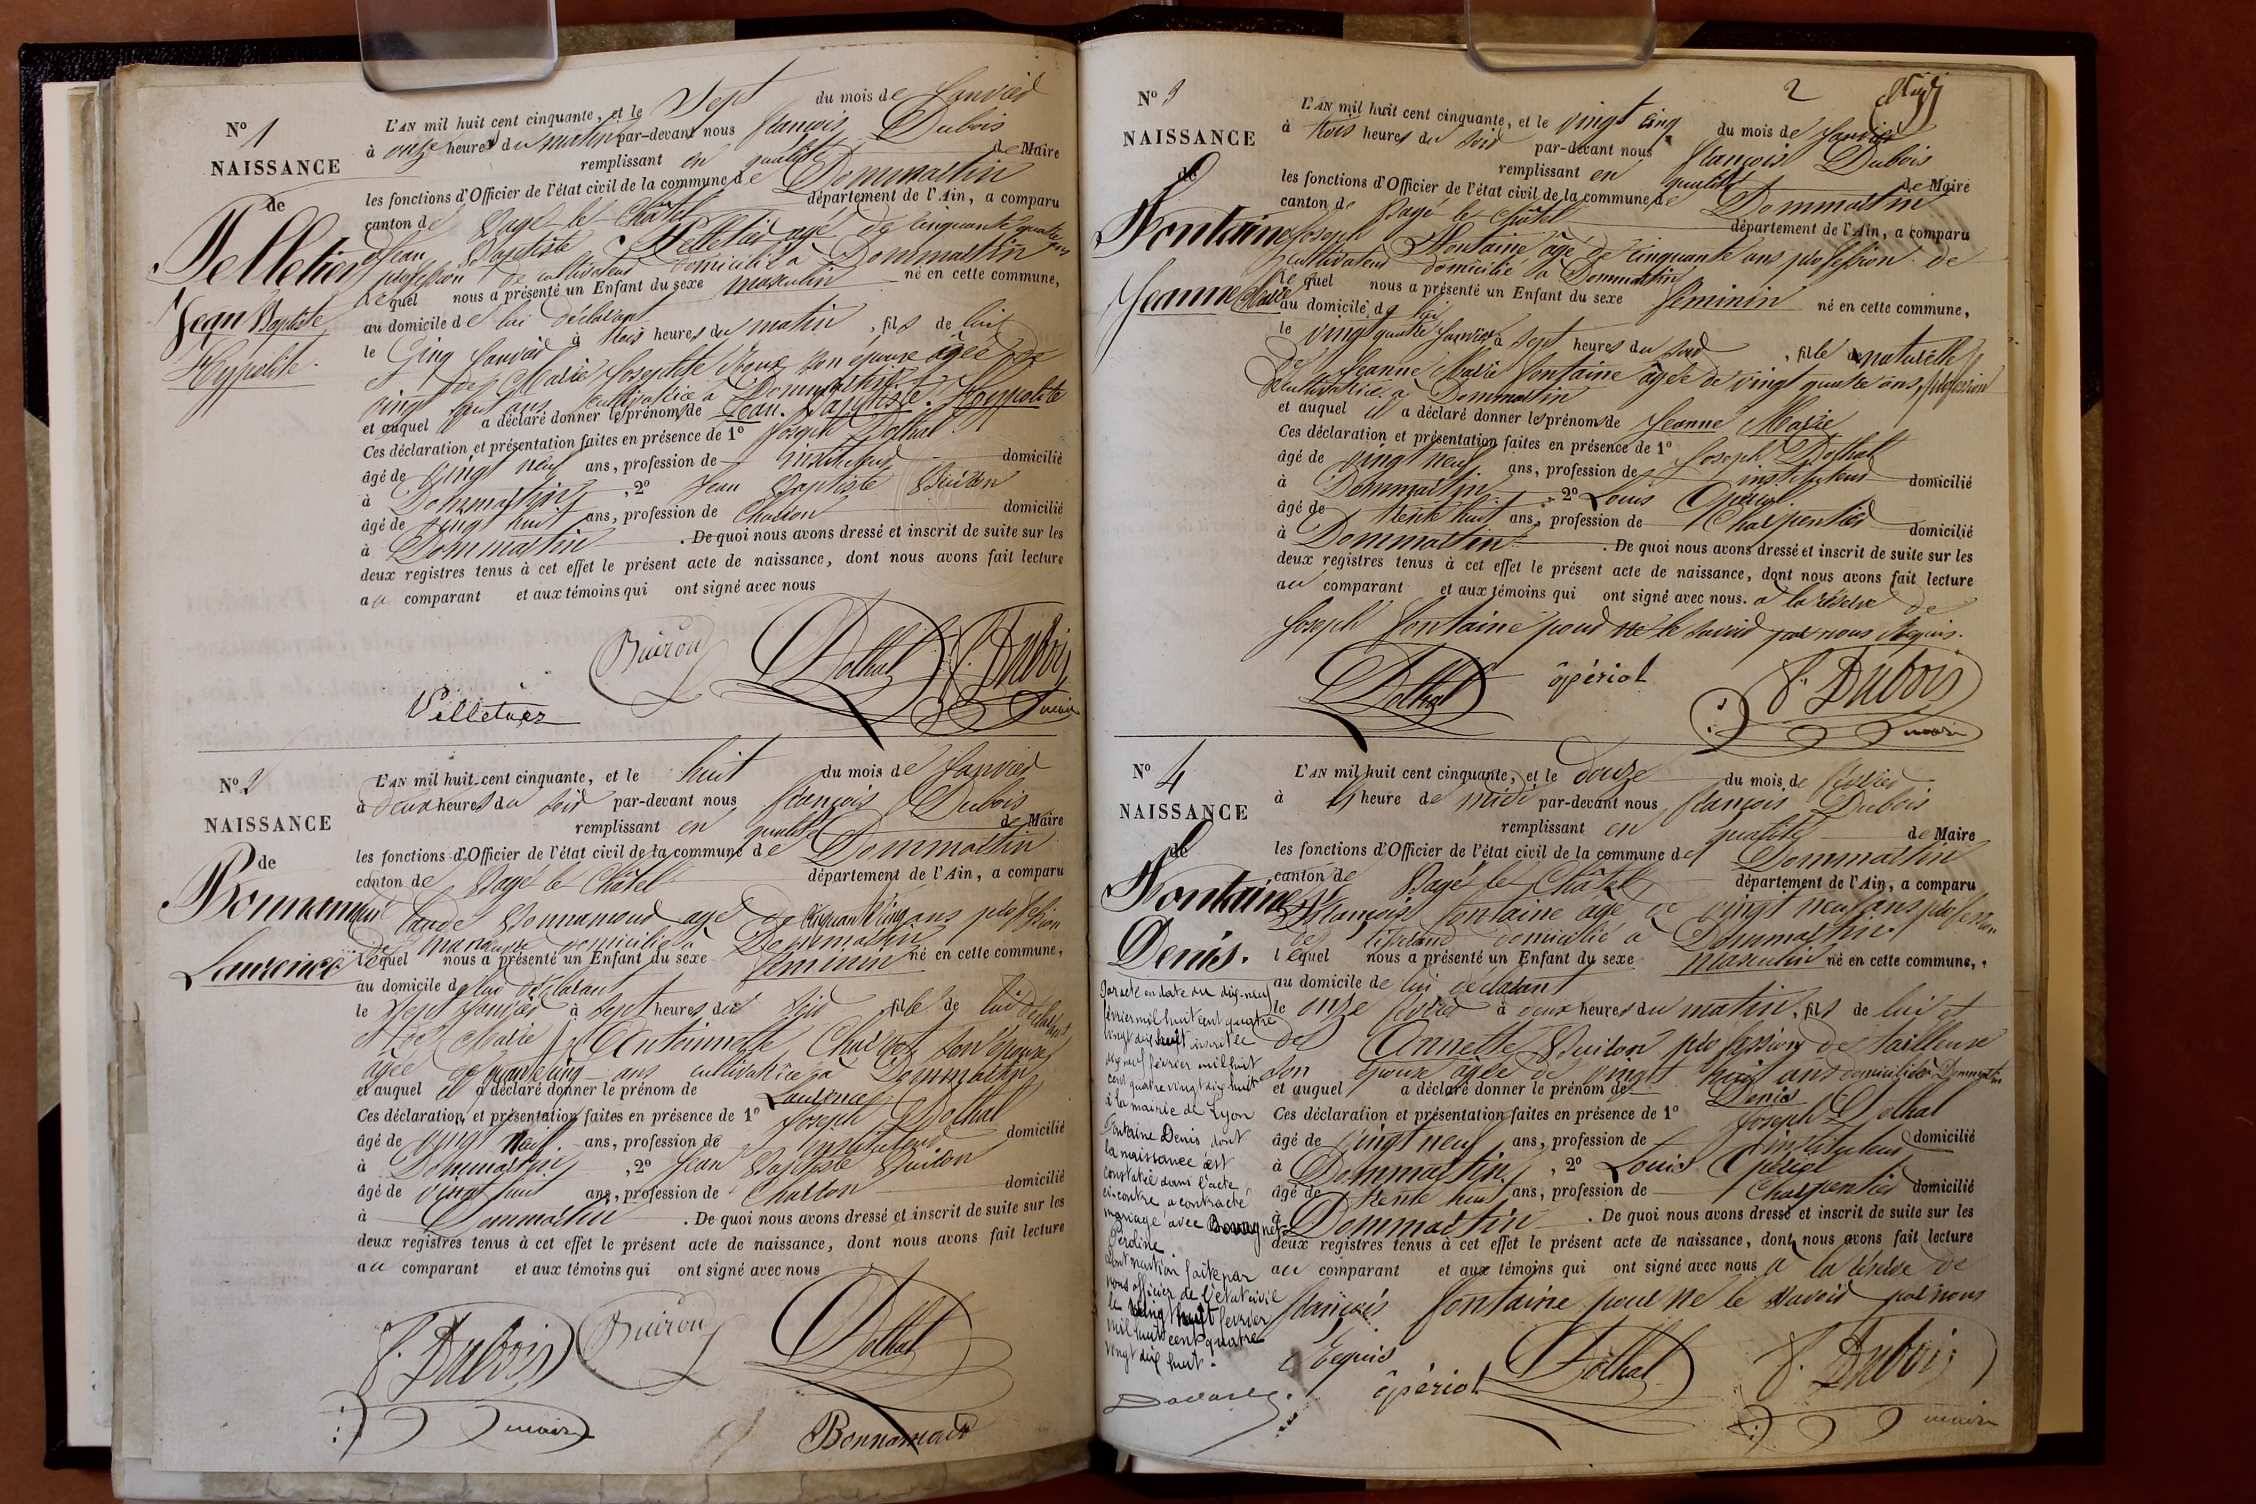 N° 1
NAISSANCE
de
Pelletier
Jean Baptiste
Hyppolite.
L'AN mil huit cent cinquante, et le Sept du mois de Janvier
à onze heures du matin par-devant nous François Dubois
remplissant en qualité de Maire
les fonctions d'Officier de l'état civil de la commune de Dommartin
canton de Bagé le Châtel département de l'Ain, a comparu
Jean Baptiste Pelletier agé de cinquante quatre ans
profession de cultivateur domicilié à Dommartin
lequel nous a présenté un Enfant du sexe masculin né en cette commune,
au domicile de lui déclarant
le Cinq Janvier à trois heures du matin, fils de lui
et de Marie Josephte son épouse âgée de
vingt ans cultivatrice à Dommartin
et auquel il a déclaré donner les prénoms de Jean Baptiste Hyppolite
Ces déclaration et présentation faites en présence de 1° Joseph Dothal
âgé de vingt neuf ans, profession de instituteur domicilié
à Dommartin, 2° Jean Baptiste Buiron
âgé de vingt huit ans, profession de Charron domicilié
à Dommartin. De quoi nous avons dressé et inscrit de suite sur les
deux registres tenus à cet effet le présent acte de naissance, dont nous avons fait lecture
au comparant et aux témoins qui ont signé avec nous
Buiron Dothal F. Dubois
Pelletier maire
N° 2
NAISSANCE
de
Bonnamour
Laurence
L'AN mil huit cent cinquante, et le huit du mois de Janvier
à deux heures du soir par-devant nous François Dubois
remplissant en qualité de Maire
les fonctions d'Officier de l'état civil de la commune de Dommartin
canton de Bagé le Châtel département de l'Ain, a comparu
Claude Bonnamour agé de cinquante cinq ans profession
de manœuvre domicilié à Dommartin
lequel nous a présenté un Enfant du sexe féminin né en cette commune,
au domicile de lui déclarant
le sept Janvier à sept heures du soir fille de lui déclarant
et de Marie Antoinette son épouse
âgée de quarante cinq ans cultivatrice à Dommartin
et auquel il a déclaré donner le prénom de Laurence
Ces déclaration et présentation faites en présence de 1° Joseph Dothal
âgé de vingt neuf ans, profession de instituteur domicilié
à Dommartin, 2° Jean Baptiste Buiron
âgé de vingt huit ans, profession de Charron domicilié
à Dommartin. De quoi nous avons dressé et inscrit de suite sur les
deux registres tenus à cet effet le présent acte de naissance, dont nous avons fait lecture
au comparant et aux témoins qui ont signé avec nous
F. Dubois Buiron Dothal
maire
Bonnamour
2
N° 3
NAISSANCE
de
Fontaine
Jeanne Marie
L'AN mil huit cent cinquante, et le vingt cinq du mois de Janvier
à trois heures du soir par-devant nous François Dubois
remplissant en qualité de Maire
les fonctions d'Officier de l'état civil de la commune de Dommartin
canton de Bagé le Châtel département de l'Ain, a comparu
Joseph Fontaine âgé de cinquante ans profession de
cultivateur domicilié à Dommartin
lequel nous a présenté un Enfant du sexe féminin né en cette commune,
au domicile de lui
le vingt quatre Janvier à sept heures du soir, fille naturelle
de Jeanne Marie Fontaine âgée de vingt quatre ans, profession
de cultivatrice à Dommartin
et auquel il a déclaré donner les prénoms de Jeanne Marie
Ces déclaration et présentation faites en présence de 1° Joseph Dothal
âgé de vingt neuf ans, profession de instituteur domicilié
à Dommartin, 2° Louis Opériol
âgé de trente huit ans, profession de Charpentier domicilié
à Dommartin. De quoi nous avons dressé et inscrit de suite sur les
deux registres tenus à cet effet le présent acte de naissance, dont nous avons fait lecture
au comparant et aux témoins qui ont signé avec nous. à la réserve de
Joseph Fontaine pour ne le savoir par nous requis.
Dothal ôpériol F. Dubois
maire
N° 4
NAISSANCE
de
Fontaine
Denis.
L'AN mil huit cent cinquante, et le douze du mois de février
à heure de midi par-devant nous François Dubois
remplissant en qualité de Maire
les fonctions d'Officier de l'état civil de la commune de Dommartin
canton de Bagé le Châtel département de l'Ain, a comparu
François Fontaine âgé de vingt neuf ans profession
de tisserand domicilié à Dommartin
lequel nous a présenté un Enfant du sexe masculin né en cette commune,
au domicile de lui déclarant
le onze février à deux heures du matin, fils de lui et
de Annette Buiron profession de tailleuse
son épouse âgée de vingt huit ans domiciliée à Dommartin
et auquel a déclaré donner le prénom de Denis
Ces déclaration et présentation faites en présence de 1° Joseph Dothal
âgé de vingt neuf ans, profession de instituteur domicilié
à Dommartin, 2° Louis Opériol
âgé de trente huit ans, profession de Charpentier domicilié
à Dommartin. De quoi nous avons dressé et inscrit de suite sur les
deux registres tenus à cet effet le présent acte de naissance, dont nous avons fait lecture
au comparant et aux témoins qui ont signé avec nous à la réserve de
François Fontaine pour ne le savoir par nous
requis
ôpériol Dothal F. Dubois
maire
Par acte en date du dix-neuf
février mil huit cent quatre
vingt dix huit inscrit le
dix neuf février mil huit
cent quatre vingt dix huit
à la mairie de Lyon
Fontaine Denis dont
la naissance est
constatée dans l'acte
ci-contre a contracté
mariage avec
dont mention faite par
nous officier de l'état civil
le vingt huit février
mil huit cent quatre
vingt dix huit.